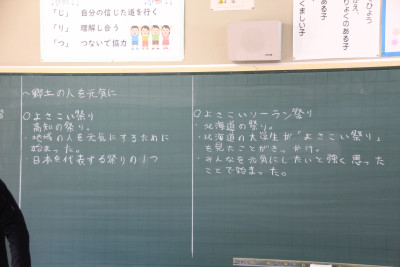 「じ」 自分の信じた道を行く
「り」 理解し合う
「つ」 つないで協力
くましい子
のある子
ひょう
りょくのある子
かえ、
〜郷土の人を元気に
〇よさこい祭り
高知の祭り。
・地域の人を元気にするために
始まった。
・日本を代表する祭りの1つ
〇よさこいソーラン祭り
・北海道の祭り。
・北海道の大学生が「よさこい祭り」
を見たことがきっかけ。
・みんなを元気にしたいと強く思った
ことで始まった。